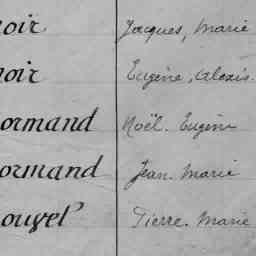 noir Jacques, Marie
noir Eugène, Alexis.
ormand Noël. Eugène
ormand Jean. Marie
ouvel Pierre. Marie